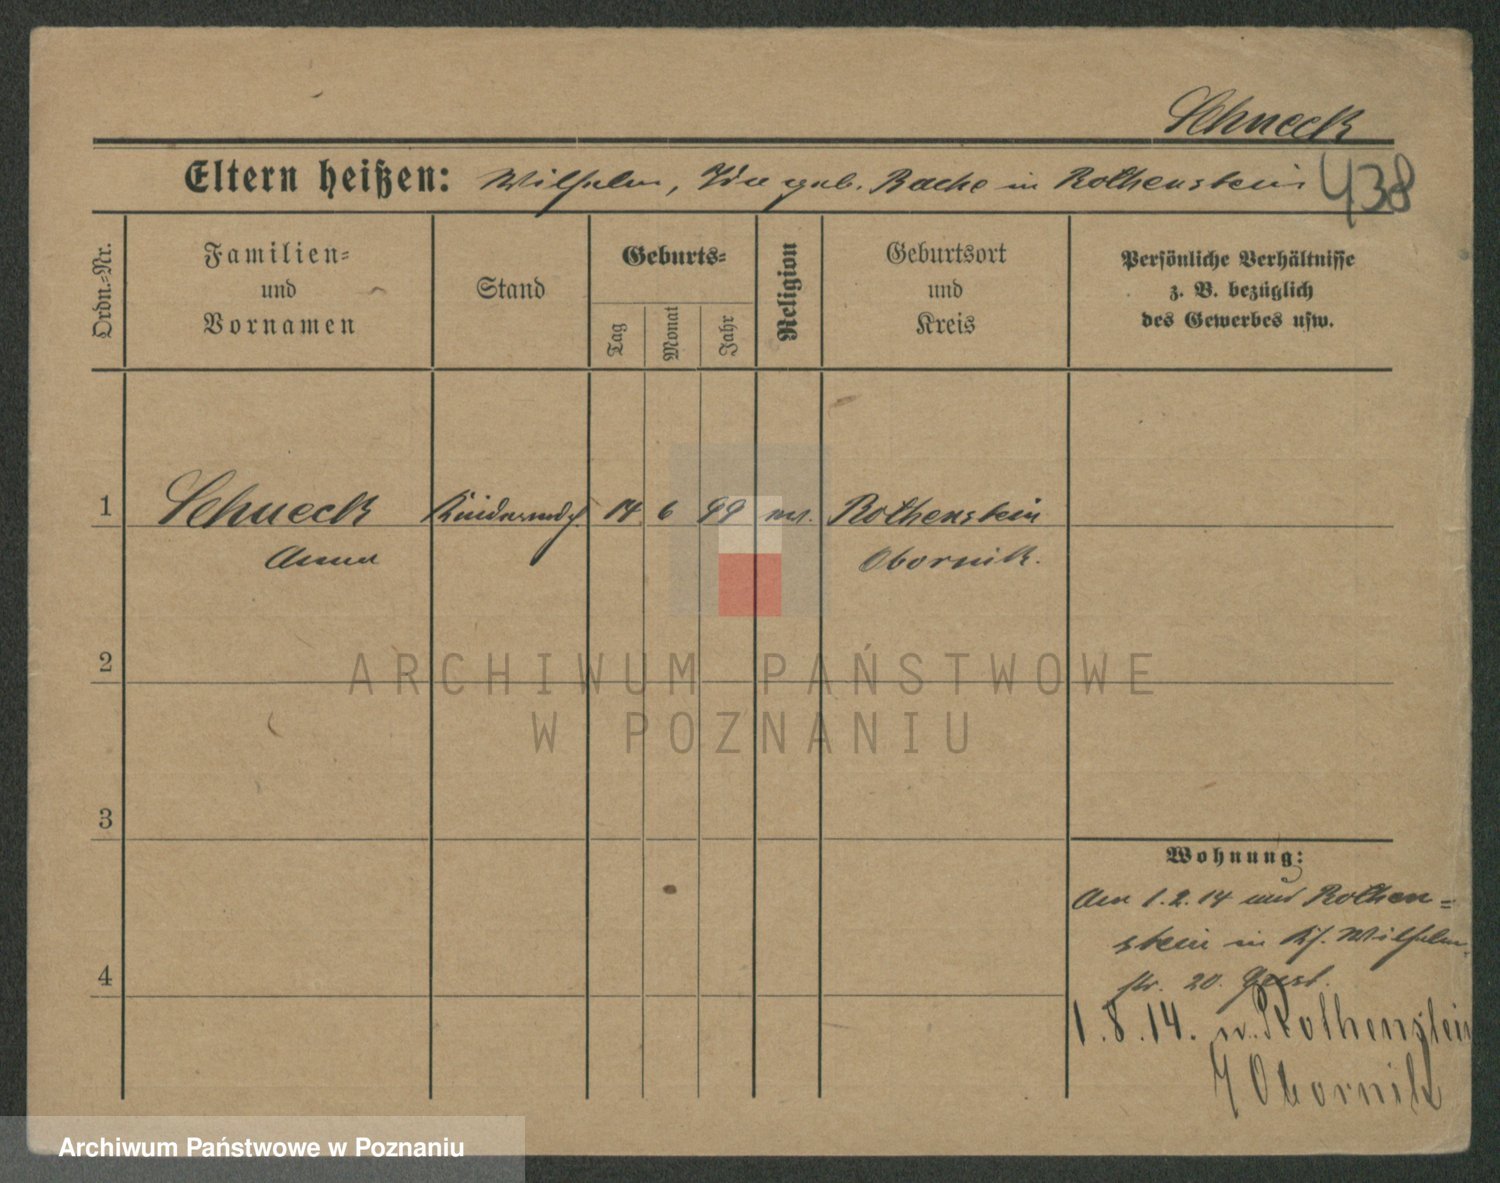 Schneck
Eltern heißen: Wilhelm, Ida geb. Rache in Rothenstein 438
Ordn.=Nr.
Familien=
und
Vornamen
Stand
Geburts=
Tag
Monat
Jahr
Religion
Geburtsort
und
Kreis
Persönliche Verhältnisse
z. B. bezüglich
des Gewerbes usw.
1 Schneck 14 6 99 Rothenstein
Anna Obornik.
2
ARCHIWUM PAŃSTWOWE
W POZNANIU
3
Wohnung:
Am 1.2.14 aus Rothen=
stein in Wilhelm
4
str. 20.
1.8.14. n. Rothenstein
Obornik
Archiwum Państwowe w Poznaniu